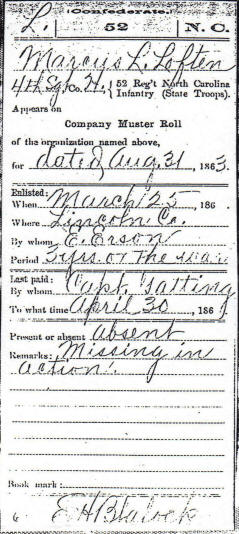 (Confederate.)
L. 52 N. C.
Marcus L. Loften
4th Sg, Co. H, 52 Reg't North Carolina
Infantry (State Troops).
Appears on
Company Muster Roll
of the organization named above,
for dated Aug 31, 1863.
Enlisted:
When March 25, 186
Where Lincoln Co.
By whom E. Erson
Period 3 yrs. or the war
Last paid:
By whom Capt.
To what time April 30, 186
Present or absent Absent
Remarks: Missing in
action.
Book mark:
6 E H Blalock